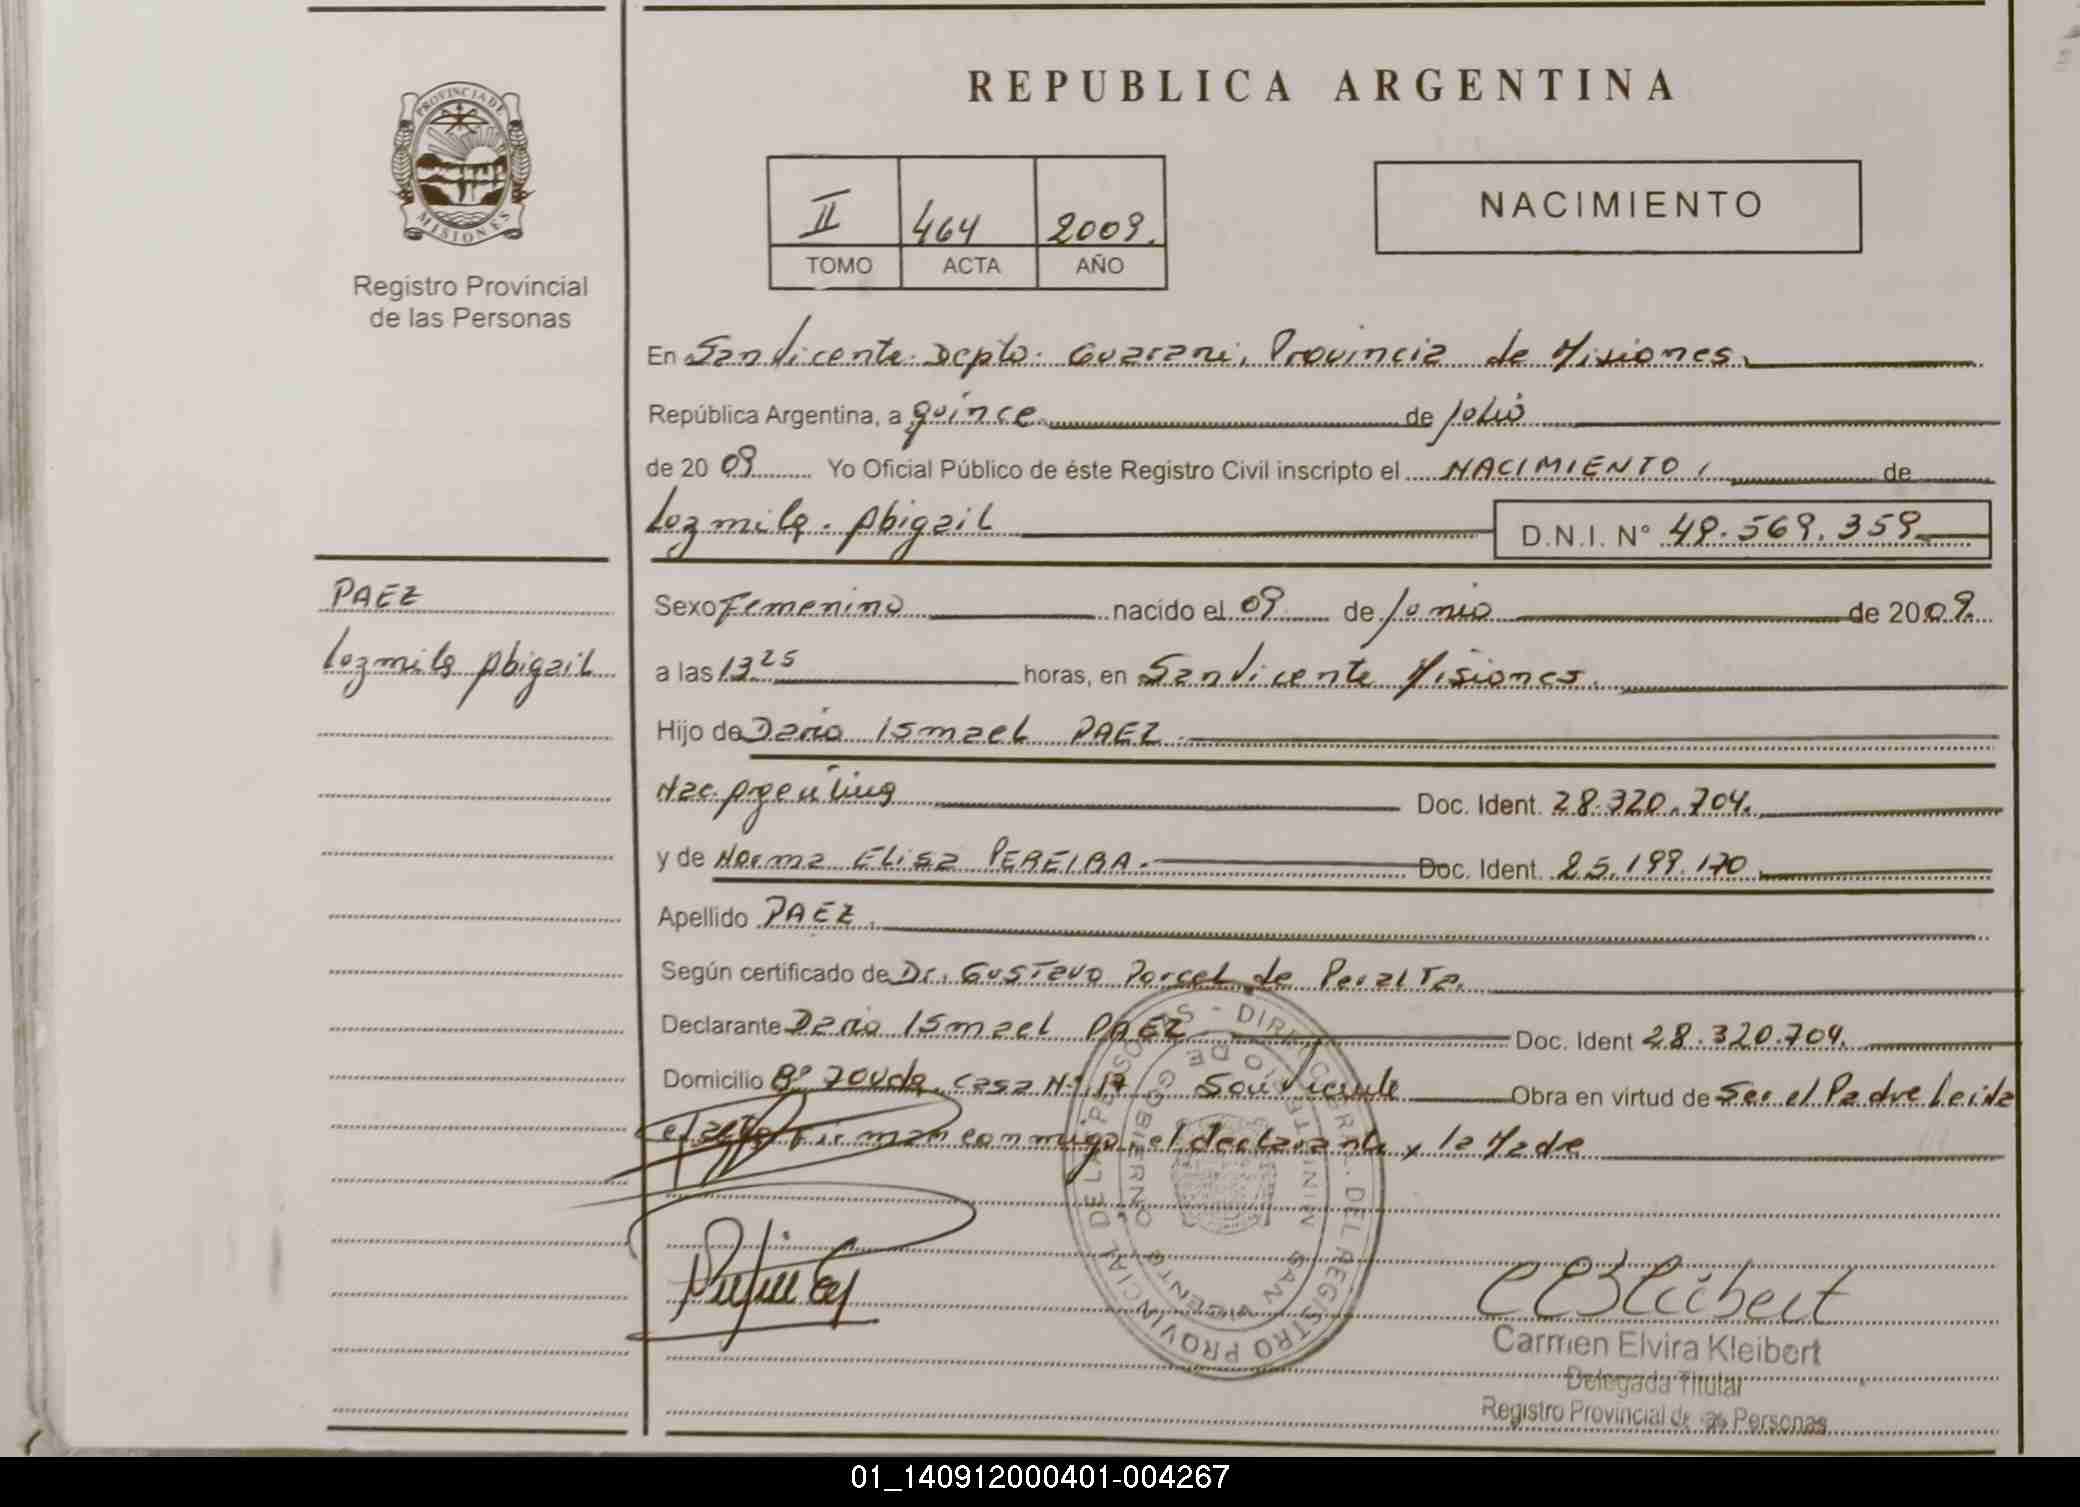 PROVINCIA DE
MISIONES
Registro Provincial
de las Personas
REPUBLICA ARGENTINA
II 464 2009.
TOMO ACTA AÑO
NACIMIENTO
En San Vicente. Dcpto. Guarani, Provincia de Misiones
República Argentina, a quince de Julio
de 20 09 Yo Oficial Público de éste Registro Civil inscripto el NACIMIENTO, de
Luzmila. Abigail D.N.I. N° 49.569.359
PAEZ
Luzmila Abigail
Sexo Femenino nacido el 09 de Junio de 2009.
a las 13 25 horas, en San Vicente Misiones.
Hijo de Dario Ismael PAEZ
Nac. Argentina Doc. Ident. 28.320.704.
y de Norma Elisa PEREIRA. Doc. Ident. 25.199.170
Apellido PAEZ.
Según certificado de Dr. Gustavo Porcel de Peralta.
Declarante Dario Ismael PAEZ Doc. Ident 28.320.704.
Domicilio Bº 70 Vdas. Casa Nº 17 San Vicente Obra en virtud de Ser el Padre Leida
el acta firman conmigo, el declarante y la Madre
DIREC. GRAL. DEL REGISTRO PROVINCIAL DE LAS PERSONAS -
MINISTERIO DE GOBIERNO
SAN VICENTE
Carmen Elvira Kleibert
Delegada Titular
Registro Provincial de las Personas
01_140912000401-004267